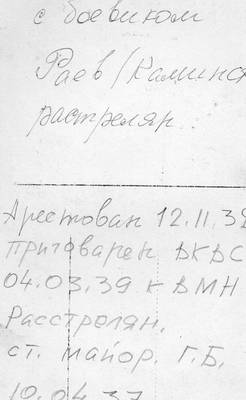 с боевиком
Раев / Каминск
расстрелян
Арестован 12.11.38
приговорен ВКВС
04.03.39 к ВМН
Расстрелян.
ст. майор. Г.Б.
10.04.37